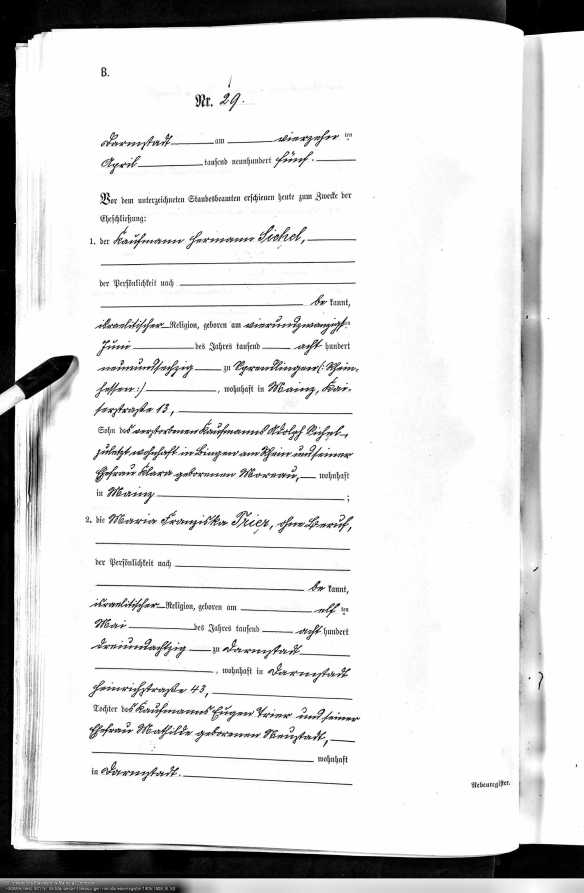 B.
Nr. 29.
Darmstadt am vierzehn ten
April tausend neunhundert fünf.
Vor dem unterzeichneten Standesbeamten erschienen heute zum Zwecke der
Eheschließung:
1. der Kaufmann Hermann Sichel,
der Persönlichkeit nach
be kannt,
israelitischer Religion, geboren am vierundzwanzigsten
Juni des Jahres tausend acht hundert
neunundsechzig zu Sprendlingen (: Rhein-
hessen :), wohnhaft in Mainz, Kai-
serstraße 13,
Sohn des verstorbenen Kaufmanns Adolph Sichel,
zuletzt wohnhaft in Bingen am Rhein und seiner
Ehefrau Klara geborenen Moreau, wohnhaft
in Mainz ;
2. die Maria Franziska Trier, ohne Beruf,
der Persönlichkeit nach
be kannt,
israelitischer Religion, geboren am elf ten
Mai des Jahres tausend acht hundert
dreiundachtzig zu Darmstadt
, wohnhaft in Darmstadt
Heinrichstraße 43,
Tochter des Kaufmanns Eugen Trier und seiner
Ehefrau Mathilde geborenen Neustadt,
wohnhaft
in Darmstadt.
Nebenregister.